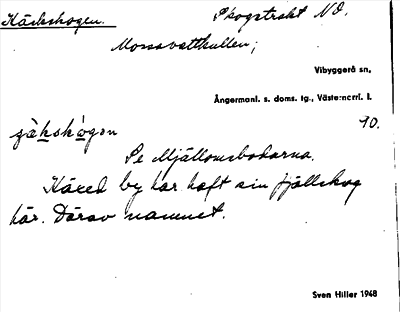 Käxskogen. Skogstrakt NO.
Mossavattkullen;
Vibyggerå sn,
Ångermanl. s. doms. tg., Västernorrl. l.
10.
Se Mjällomsbodarna.
Käxed by har haft sin fjällskog
här. Därav namnet.
Sven Hiller 1948